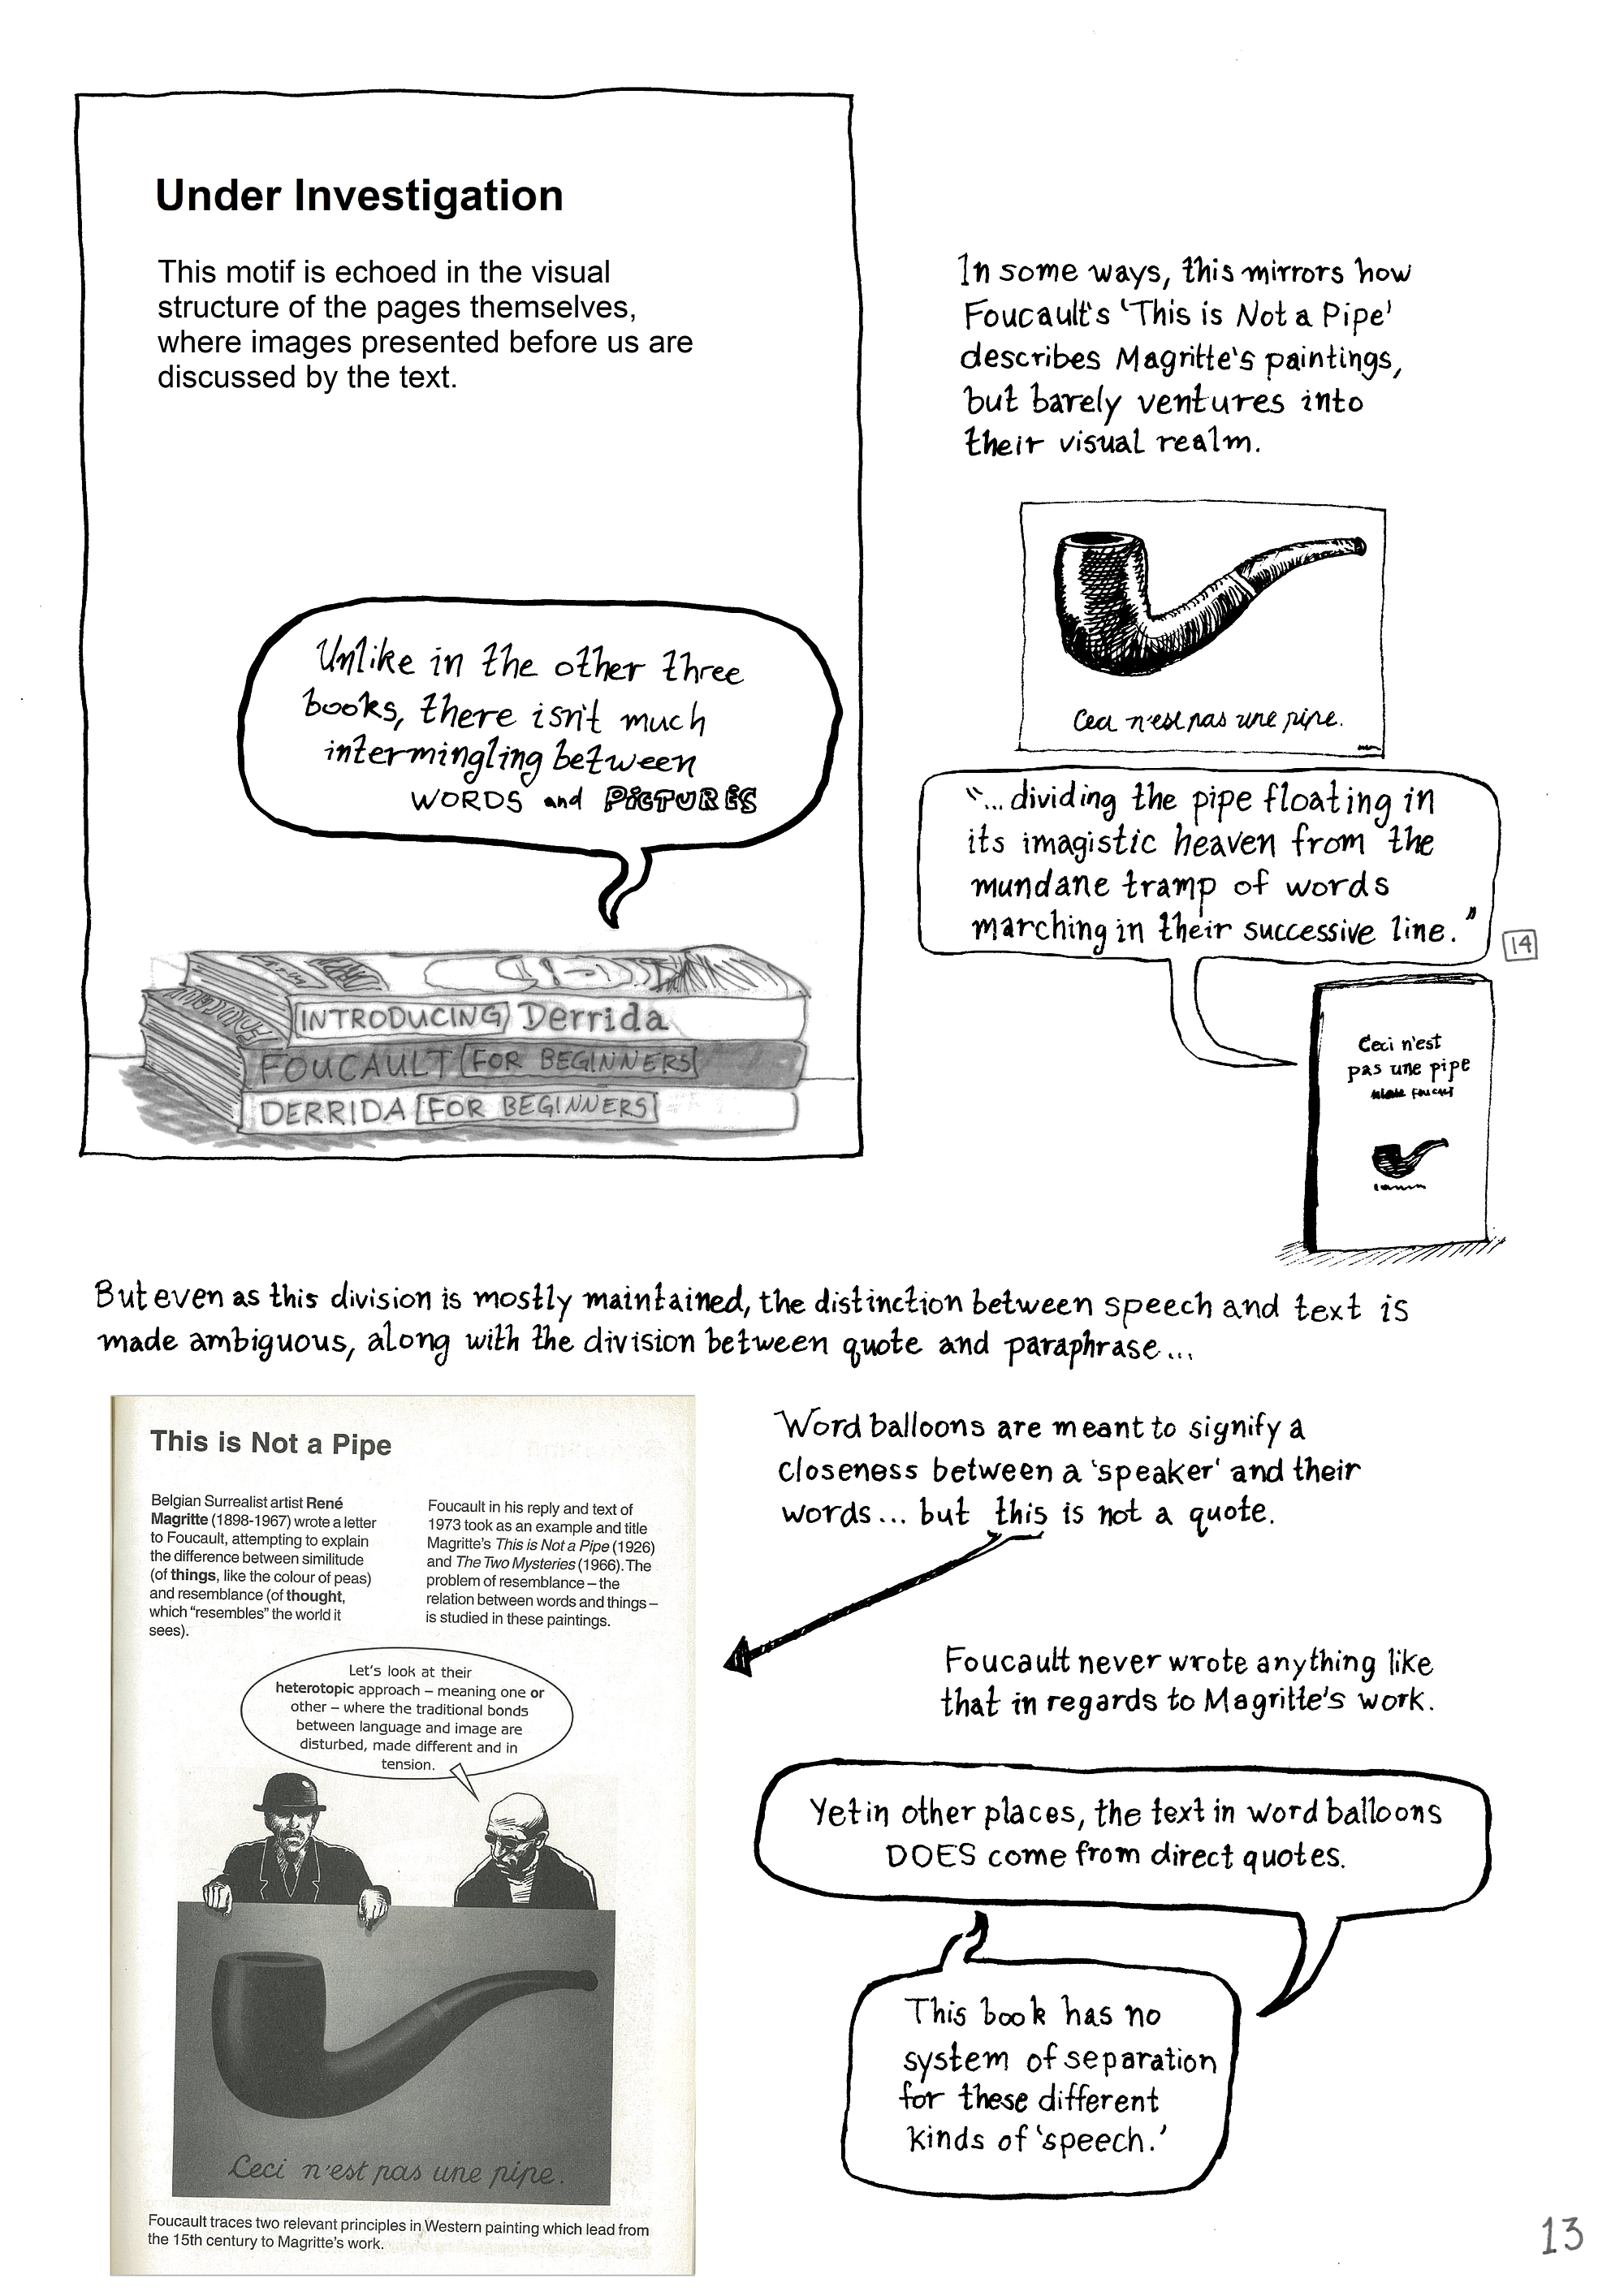 Under Investigation
This motif is echoed in the visual
structure of the pages themselves,
where images presented before us are
discussed by the text.
Unlike in the other three
books, there isn't much
intermingling between
WORDS and PICTURES
INTRODUCING Derrida
FOUCAULT FOR BEGINNERS
DERRIDA FOR BEGINNERS
In some ways, this mirrors how
Foucault's 'This is Not a Pipe'
describes Magritte's paintings,
but barely ventures into
their visual realm.
Ceci n'est pas une pipe.
"...dividing the pipe floating in
its imagistic heaven from the
mundane tramp of words
marching in their successive line."
14
Ceci n'est
pas une pipe
But even as this division is mostly maintained, the distinction between speech and text is
made ambiguous, along with the division between quote and paraphrase...
This is Not a Pipe
Belgian Surrealist artist René
Magritte (1898-1967) wrote a letter
to Foucault, attempting to explain
the difference between similitude
(of things, like the colour of peas)
and resemblance (of thought,
which "resembles" the world it
sees).
Foucault in his reply and text of
1973 took as an example and title
Magritte's This is Not a Pipe (1926)
and The Two Mysteries (1966). The
problem of resemblance – the
relation between words and things –
is studied in these paintings.
Let's look at their
heterotopic approach – meaning one or
other – where the traditional bonds
between language and image are
disturbed, made different and in
tension.
Ceci n'est pas une pipe.
Foucault traces two relevant principles in Western painting which lead from
the 15th century to Magritte's work.
Word balloons are meant to signify a
closeness between a 'speaker' and their
words... but this is not a quote.
Foucault never wrote anything like
that in regards to Magritte's work.
Yet in other places, the text in word balloons
DOES come from direct quotes.
This book has no
system of separation
for these different
kinds of 'speech.'
13